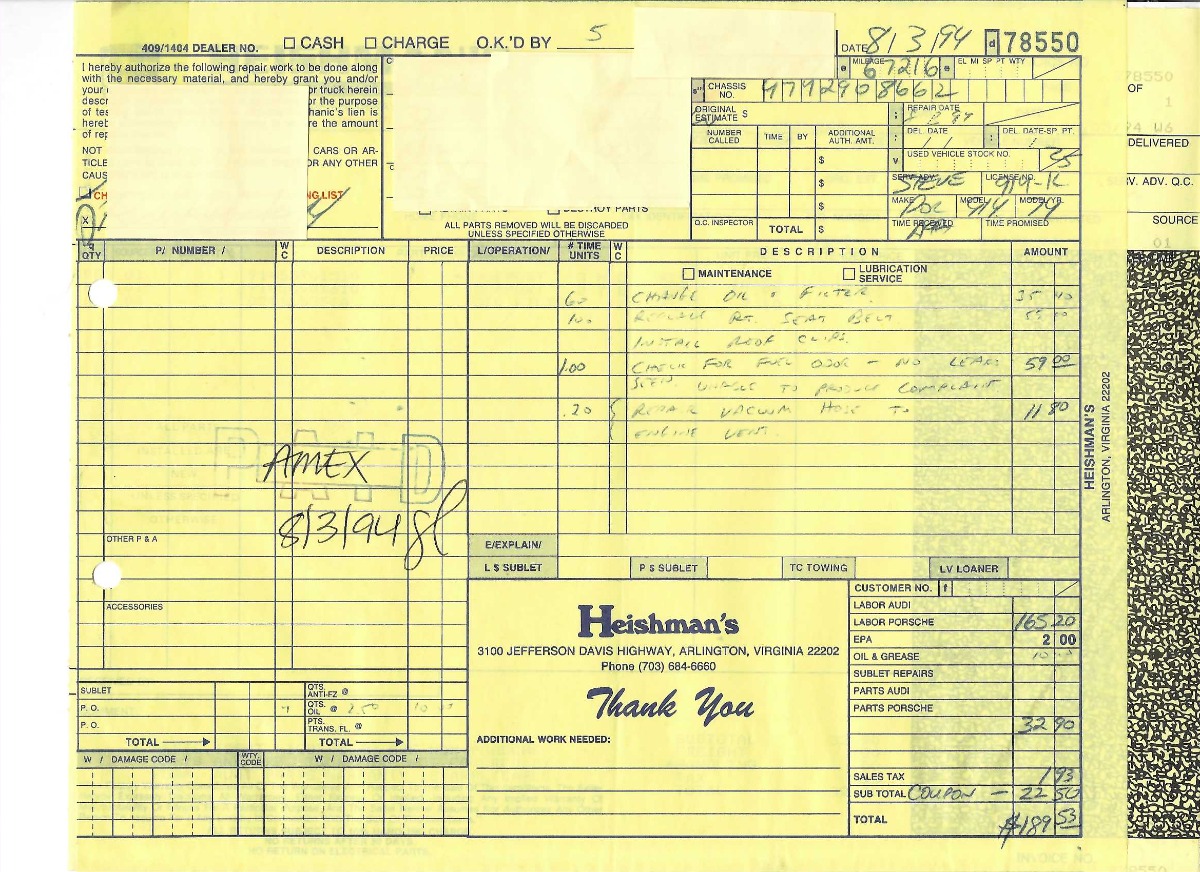 409/1404 DEALER NO. ☐ CASH ☐ CHARGE O.K.'D BY 5
DATE 8/3/94 d 78550
I hereby authorize the following repair work to be done along
with the necessary material, and hereby grant you and/or
your or truck herein
descr or the purpose
of tes hanic's lien is
hereb re the amount
of rep
NOT CARS OR AR-
TICLE OR ANY OTHER
CAUS
CH NG LIST
MILEAGE 67216 EL MI SP PT WTY
CHASSIS NO. 4792908662
ORIGINAL ESTIMATE $
REPAIR DATE
NUMBER CALLED TIME BY ADDITIONAL AUTH. AMT.
DEL. DATE DEL. DATE-SP. PT.
$
V USED VEHICLE STOCK NO. 35
$
SERV. ADV. STEVE LICENSE NO. 914-K
$
MAKE POR MODEL 914 MODEL YR. 74
O.C. INSPECTOR TOTAL $
TIME RECEIVED TIME PROMISED
DESTROY PARTS
ALL PARTS REMOVED WILL BE DISCARDED
UNLESS SPECIFIED OTHERWISE
QTY P/ NUMBER / W C DESCRIPTION PRICE L/OPERATION/ # TIME UNITS W C DESCRIPTION AMOUNT
☐ MAINTENANCE ☐ LUBRICATION SERVICE
.60 CHANGE OIL & FILTER 35 40
REPLACE RT. SEAT BELT
INSTALL ROOF CLIPS.
1.00 CHECK FOR FUEL ODOR - NO LEAKS 59 00
SEEN. UNABLE TO PRODUCE COMPLAINT
.20 REPAIR VACUUM HOSE TO 11 80
ENGINE VENT.
PAID
AMEX
8/3/94
HEISHMAN'S
ARLINGTON, VIRGINIA 22202
OTHER P & A
E/EXPLAIN/
L $ SUBLET P $ SUBLET TC TOWING LV LOANER
ACCESSORIES
Heishman's
3100 JEFFERSON DAVIS HIGHWAY, ARLINGTON, VIRGINIA 22202
Phone (703) 684-6660
Thank You
ADDITIONAL WORK NEEDED:
CUSTOMER NO. f
LABOR AUDI
LABOR PORSCHE 165 20
EPA 2 00
OIL & GREASE 10
SUBLET REPAIRS
PARTS AUDI
PARTS PORSCHE
32 90
SALES TAX 1 93
SUB TOTAL COUPON - 22 50
TOTAL $189 53
SUBLET QTS. ANTI-FZ @
P. O. 4 QTS. OIL @ 2.50 10
P. O. PTS. TRANS. FL. @
TOTAL TOTAL
W / DAMAGE CODE / WTY. CODE W / DAMAGE CODE /
78550
OF
1
94 W6
DELIVERED
V. ADV. Q.C.
SOURCE
01